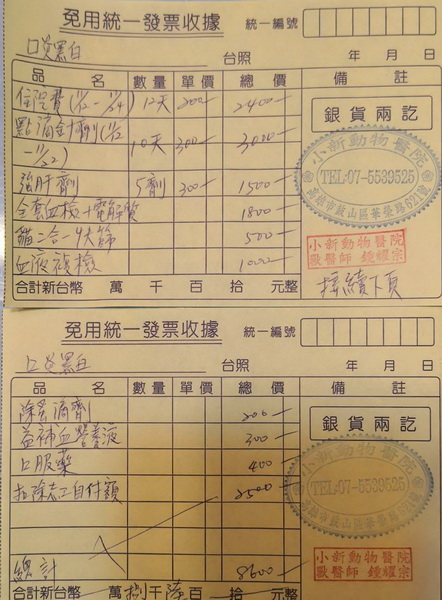 免用統一發票收據 統一編號
口炎黑白 台照 年 月 日
品 名 數量 單價 總 價 備 註
住院費(11/12-11/24) 12天 200 2400
點滴針劑(11/12 10天 300 3000
-11/22)
強肝劑 5劑 300 1500
全套血檢+電解質 1800
貓二合一快篩 500
血液複檢 1000
合計新台幣 萬 千 百 拾 元整
銀貨兩訖
小新動物醫院
TEL:07-5539525
高雄市鼓山區華榮路521號
小新動物醫院
獸醫師 鍾耀宗
接續下頁
免用統一發票收據 統一編號
口炎黑白 台照 年 月 日
品 名 數量 單價 總 價 備 註
除蚤滴劑 200
益補血營養液 300
口服藥 400
扣除志工自付額 2500
總計 8600
合計新台幣 萬 捌千 陸百 拾 元整
銀貨兩訖
小新動物醫院
TEL:07-5539525
小新動物醫院
獸醫師 鍾耀宗